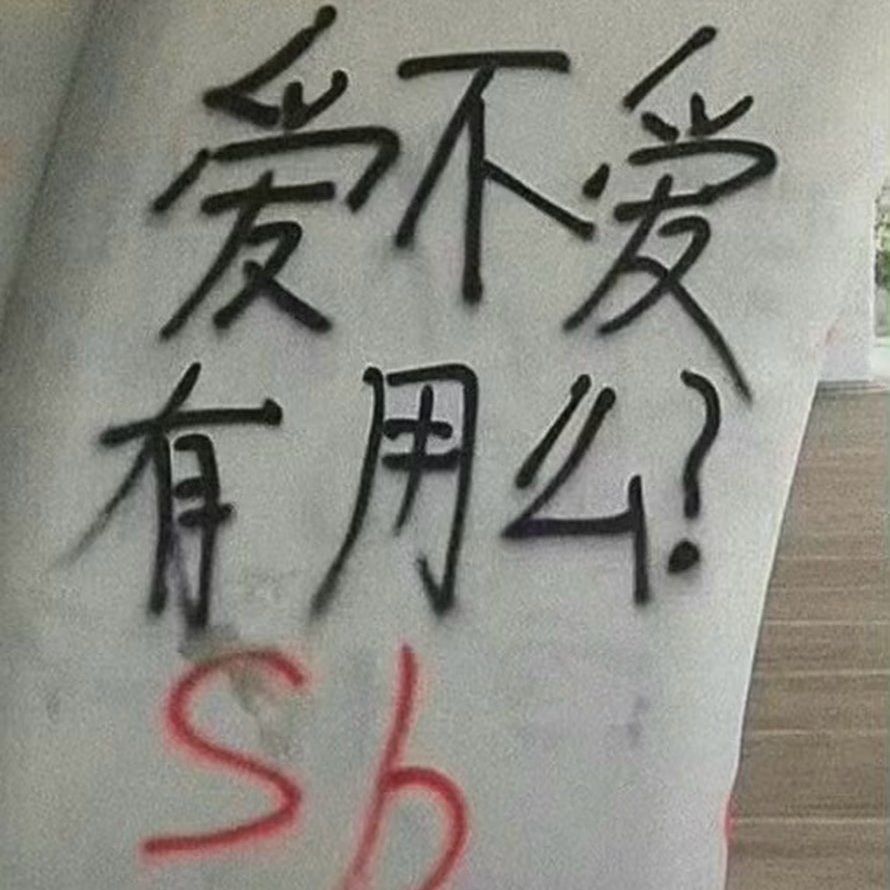 爱不爱
有用么?
Sb